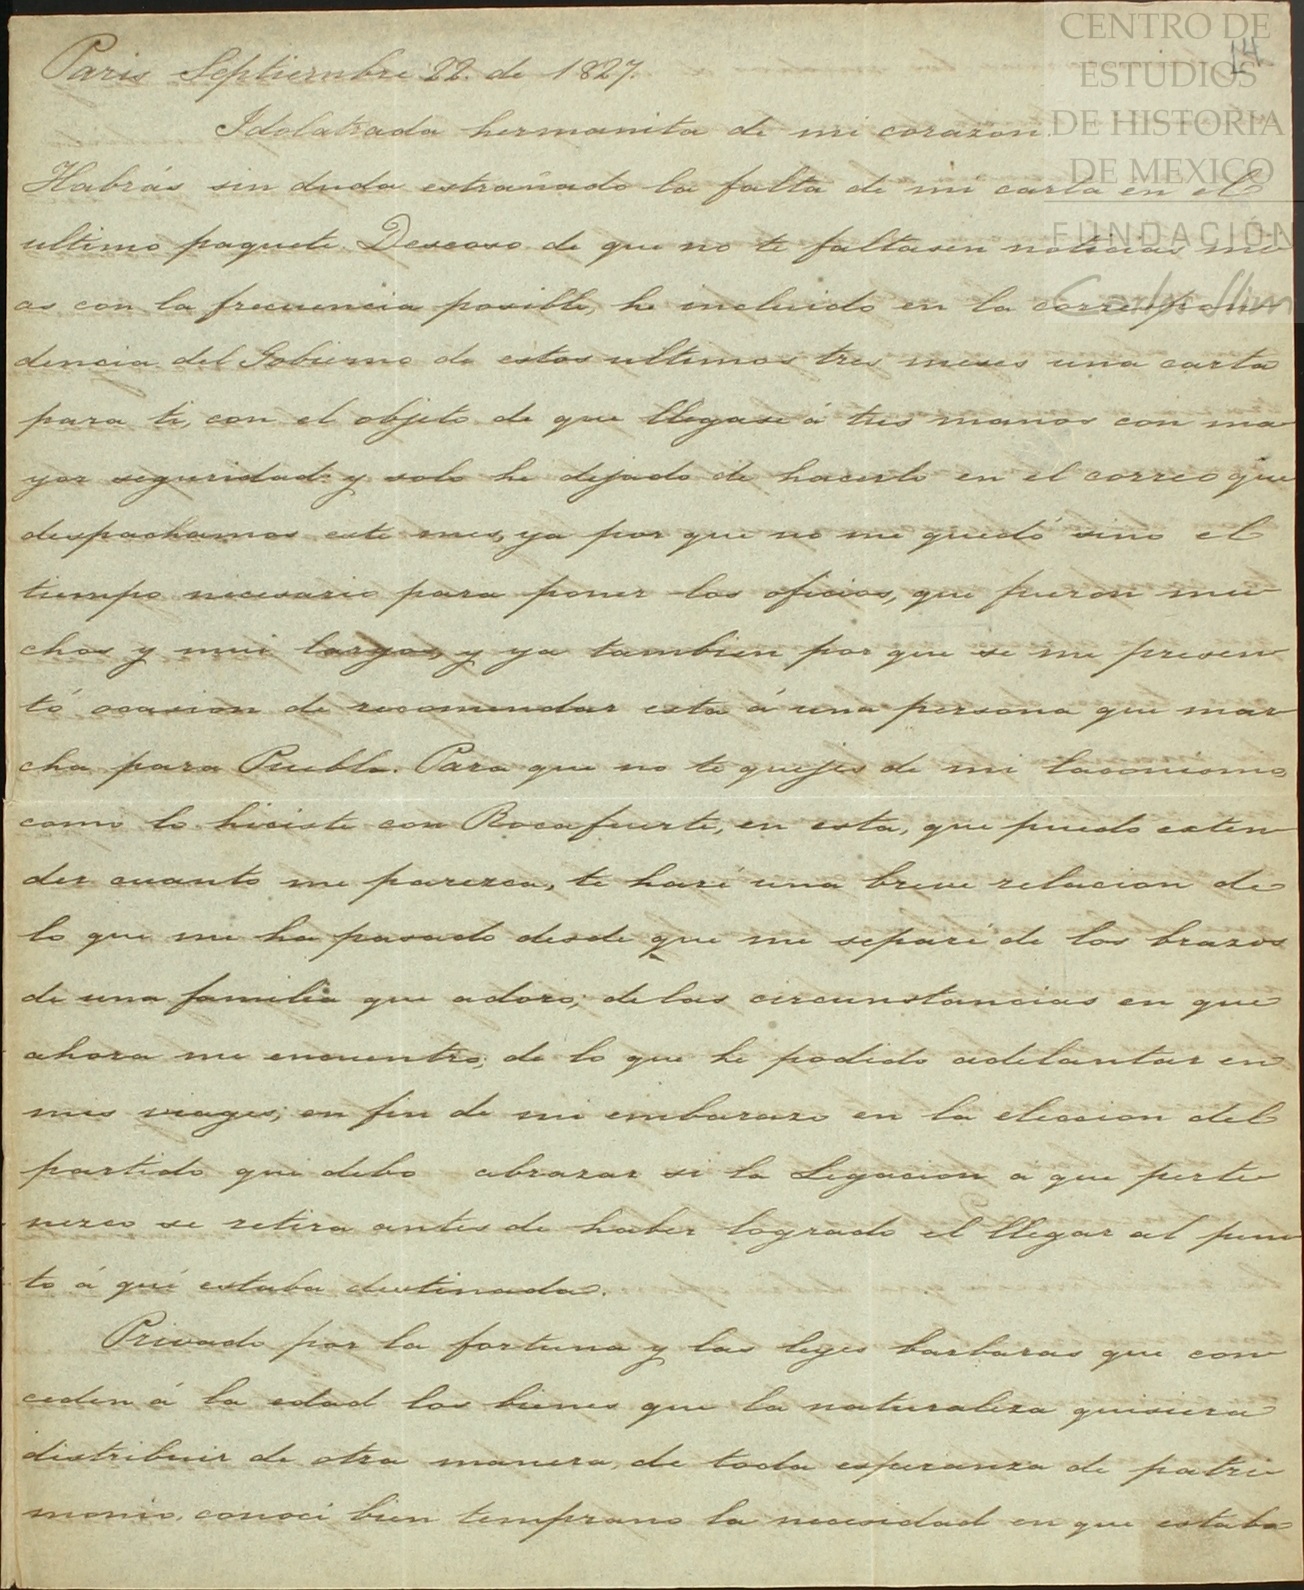 CENTRO DE
ESTUDIOS
DE HISTORIA
DE MEXICO
FUNDACIÓN
Carlos Slim
14
Paris Septiembre 22. de 1827.
Idolatrada hermanita de mi corazon.
Habrás sin duda estrañado la falta de mi carta en el
ultimo paquete. Deseoso de que no te faltasen noticias mi
as con la frecuencia posible, he incluido en la correspon
dencia del Gobierno de estos ultimos tres meses una carta
para ti, con el objeto de que llegase á tus manos con ma
yor seguridad: y solo he dejado de hacerlo en el correo que
despachamos este mes, ya por que no me quedó sino el
tiempo necesario para poner los oficios, que fueron mu
chos y mui largos, y ya tambien por que se me presen
tó ocasion de recomendar esta á una persona que mar
cha para Puebla. Para que no te quejes de mi laconismo
como lo hiciste con Rocafuerte, en esta, que puedo exten
der cuanto me parezca, te haré una breve relacion de
lo que me ha pasado desde que me separé de los brazos
de una familia que adoro; de las circunstancias en que
ahora me encuentro; de lo que he podido adelantar en
mis viages; en fin de mi embarazo en la eleccion del
partido que debo abrazar si la Legacion a que perte
nezco se retira antes de haber logrado el llegar al pun
to á qué estaba destinada.
Privado por la fortuna y las leyes barbaras que con
ceden á la edad los bienes que la naturaleza quisiera
distribuir de otra manera, de toda esperanza de patri
monio, conocí bien temprano la necesidad en que estaba